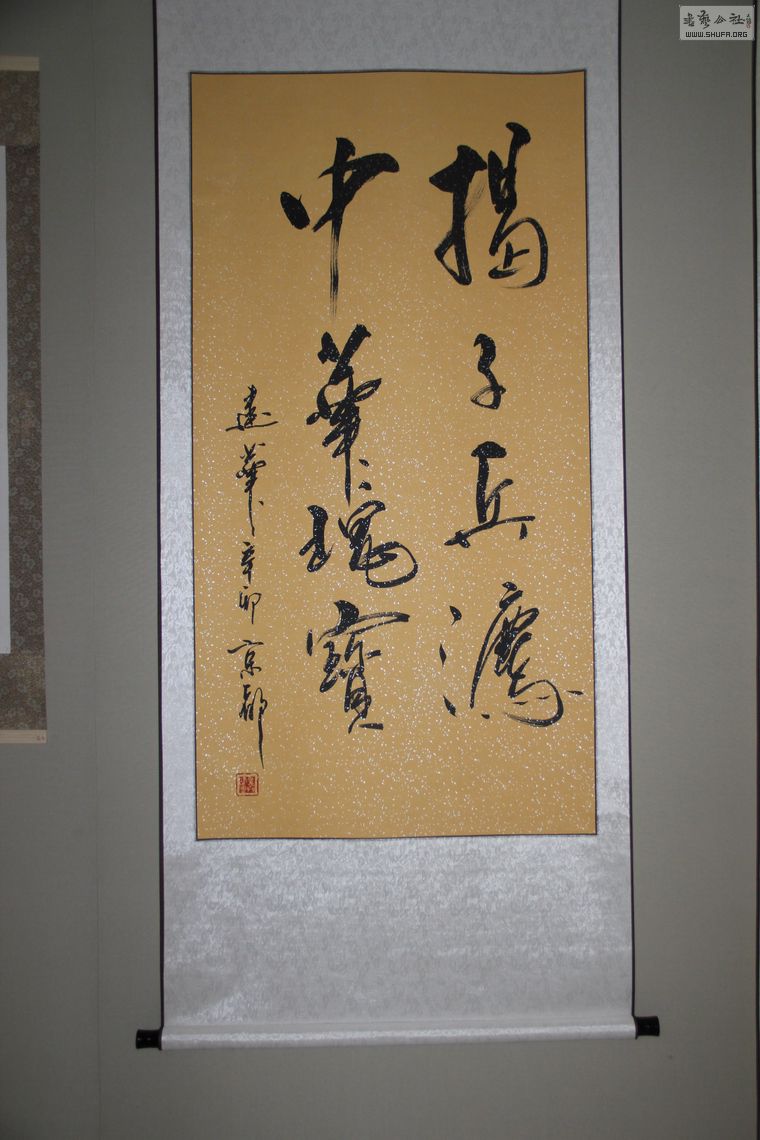 揭子兵灋
中華瑰寶
華辛卯京都
書藝公社
WWW.SHUFA.ORG